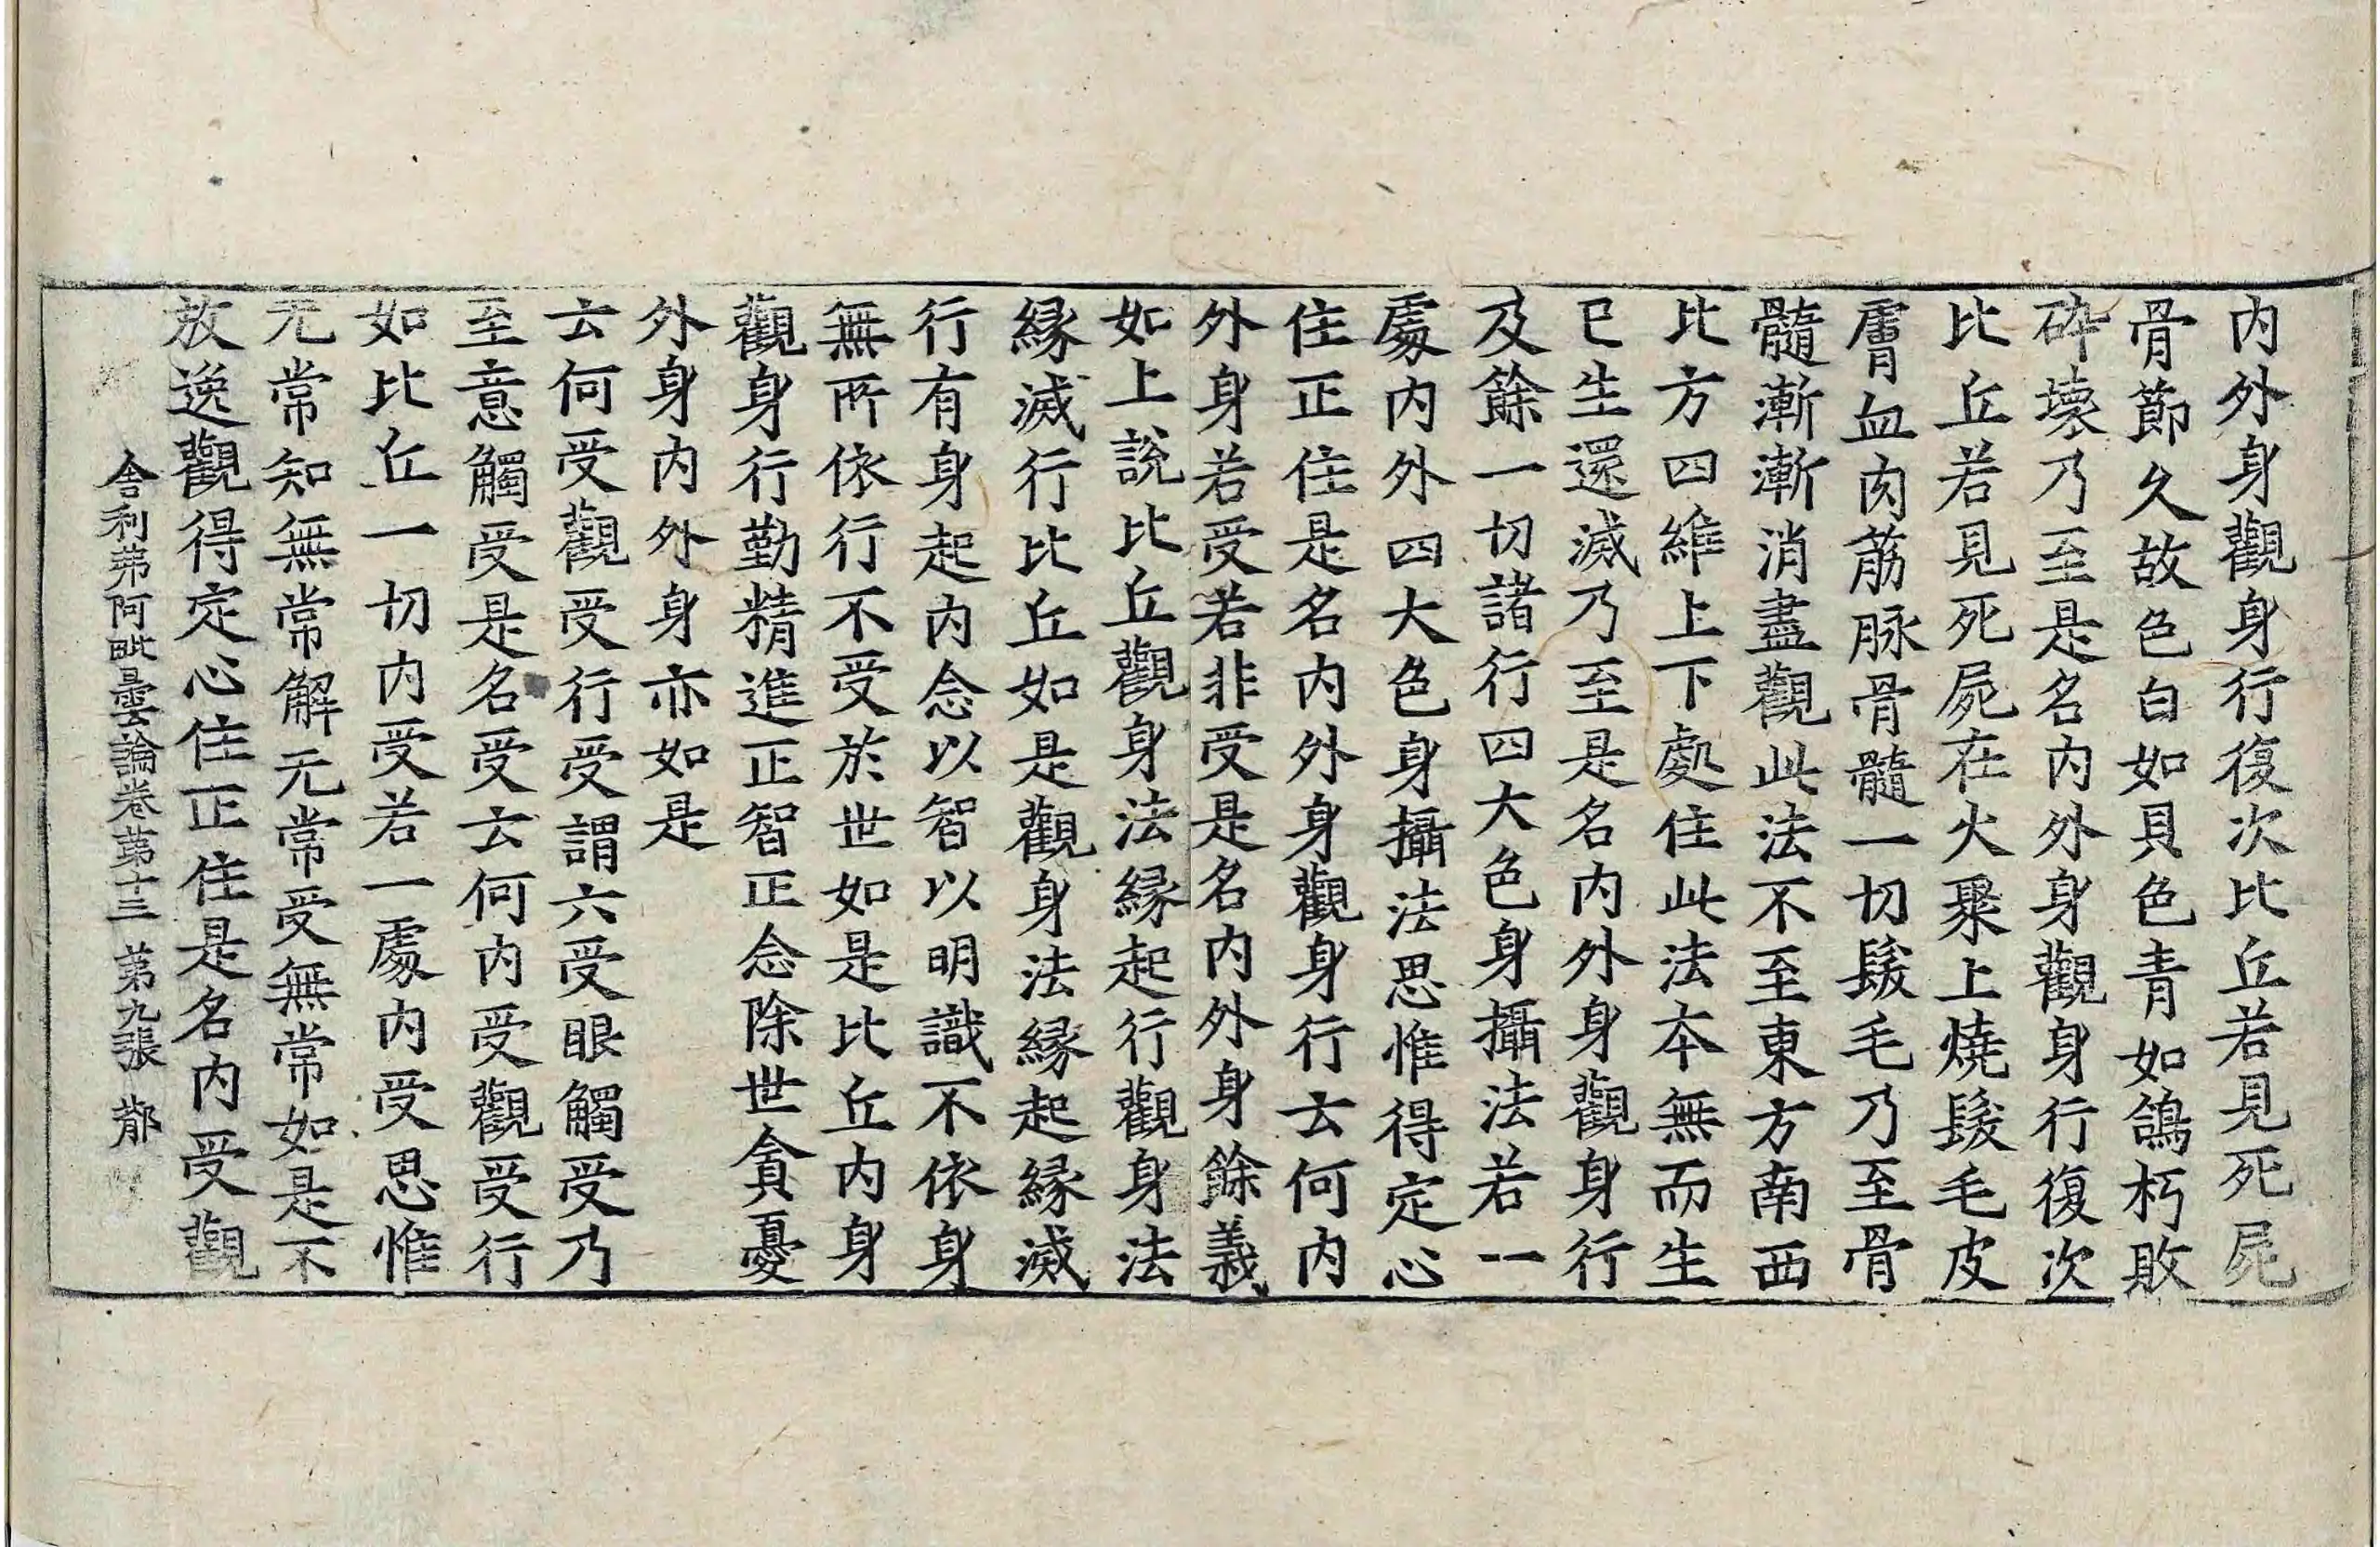 内外身觀身行復次比丘若見死屍
骨節久故色白如貝色青如鴿朽敗
碎壞乃至是名内外身觀身行復次
比丘若見死屍在火聚上燒髮毛皮
膚血肉筋脉骨髓一切髮毛乃至骨
髓漸漸消盡觀此法不至東方南西
比方四維上下處住此法本無而生
已生還滅乃至是名内外身觀身行
及餘一切諸行四大色身攝法若一
處内外四大色身攝法思惟得定心
住正住是名内外身觀身行云何内
外身若受若非受是名内外身餘義
如上説比丘觀身法緣起行觀身法
緣滅行比丘如是觀身法緣起緣滅
行有身起内念以智以明識不依身
無所依行不受於世如是比丘内身
觀身行勤精進正智正念除世貪憂
外身内外身亦如是
云何受觀受行受謂六受眼觸受乃
至意觸受是名受云何内受觀受行
如比丘一切内受若一處内受思惟
无常知無常解无常受無常如是不
放逸觀得定心住正住是名内受觀
舍利弗阿毗曇論卷第十三 第九張